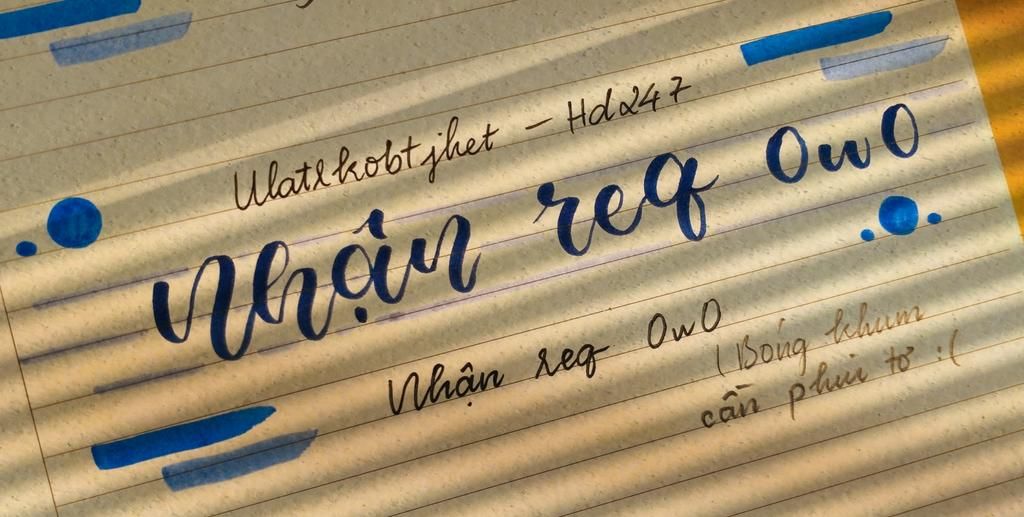 Ulatlkobtjhet - Hd247
Nhận req OwO
Nhận req OwO
(Bóng khum
cần phui tớ :(